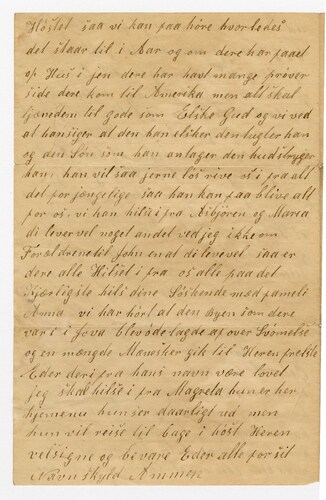 Höstet saa vi kan faa höre hvorledes
det staar til i Aar og om dere har faaet
op Hus i jen dere har havt mange pröver
side dere kom til Amerika men alt skal
tjene den til gode som Elske Gud og vi ved
at han siger at den han elsker den tugter han
og den Sön som han antager den hudstryger
han han vil saa jerne lös rive os i fra alt
det forjængelige saa han kan faa blive alt
for os. vi kan hilse i fra Asbjören og Maria
di lever vel noget andet ved jeg ikke om
Foræl drene til John en at di lever vel saa er
dere alle Hilset i fra os alle paa det
Kjærligste hils dine Söskende med fameli
Anna vi har hört at den Byen som dere
var i i Jova blev öde lagde af over Svömelse
og en mængde Mænesker gik til Heren frelste
Eder deri fra hans navn være lovet
jeg skal hilse i fra Magreta hun er her
hjemenu hun ser daarligt ud men
hun vil reise til bage i höst Heren
velsigne og be vare Eder alle for sit
Navn skyld Ammen